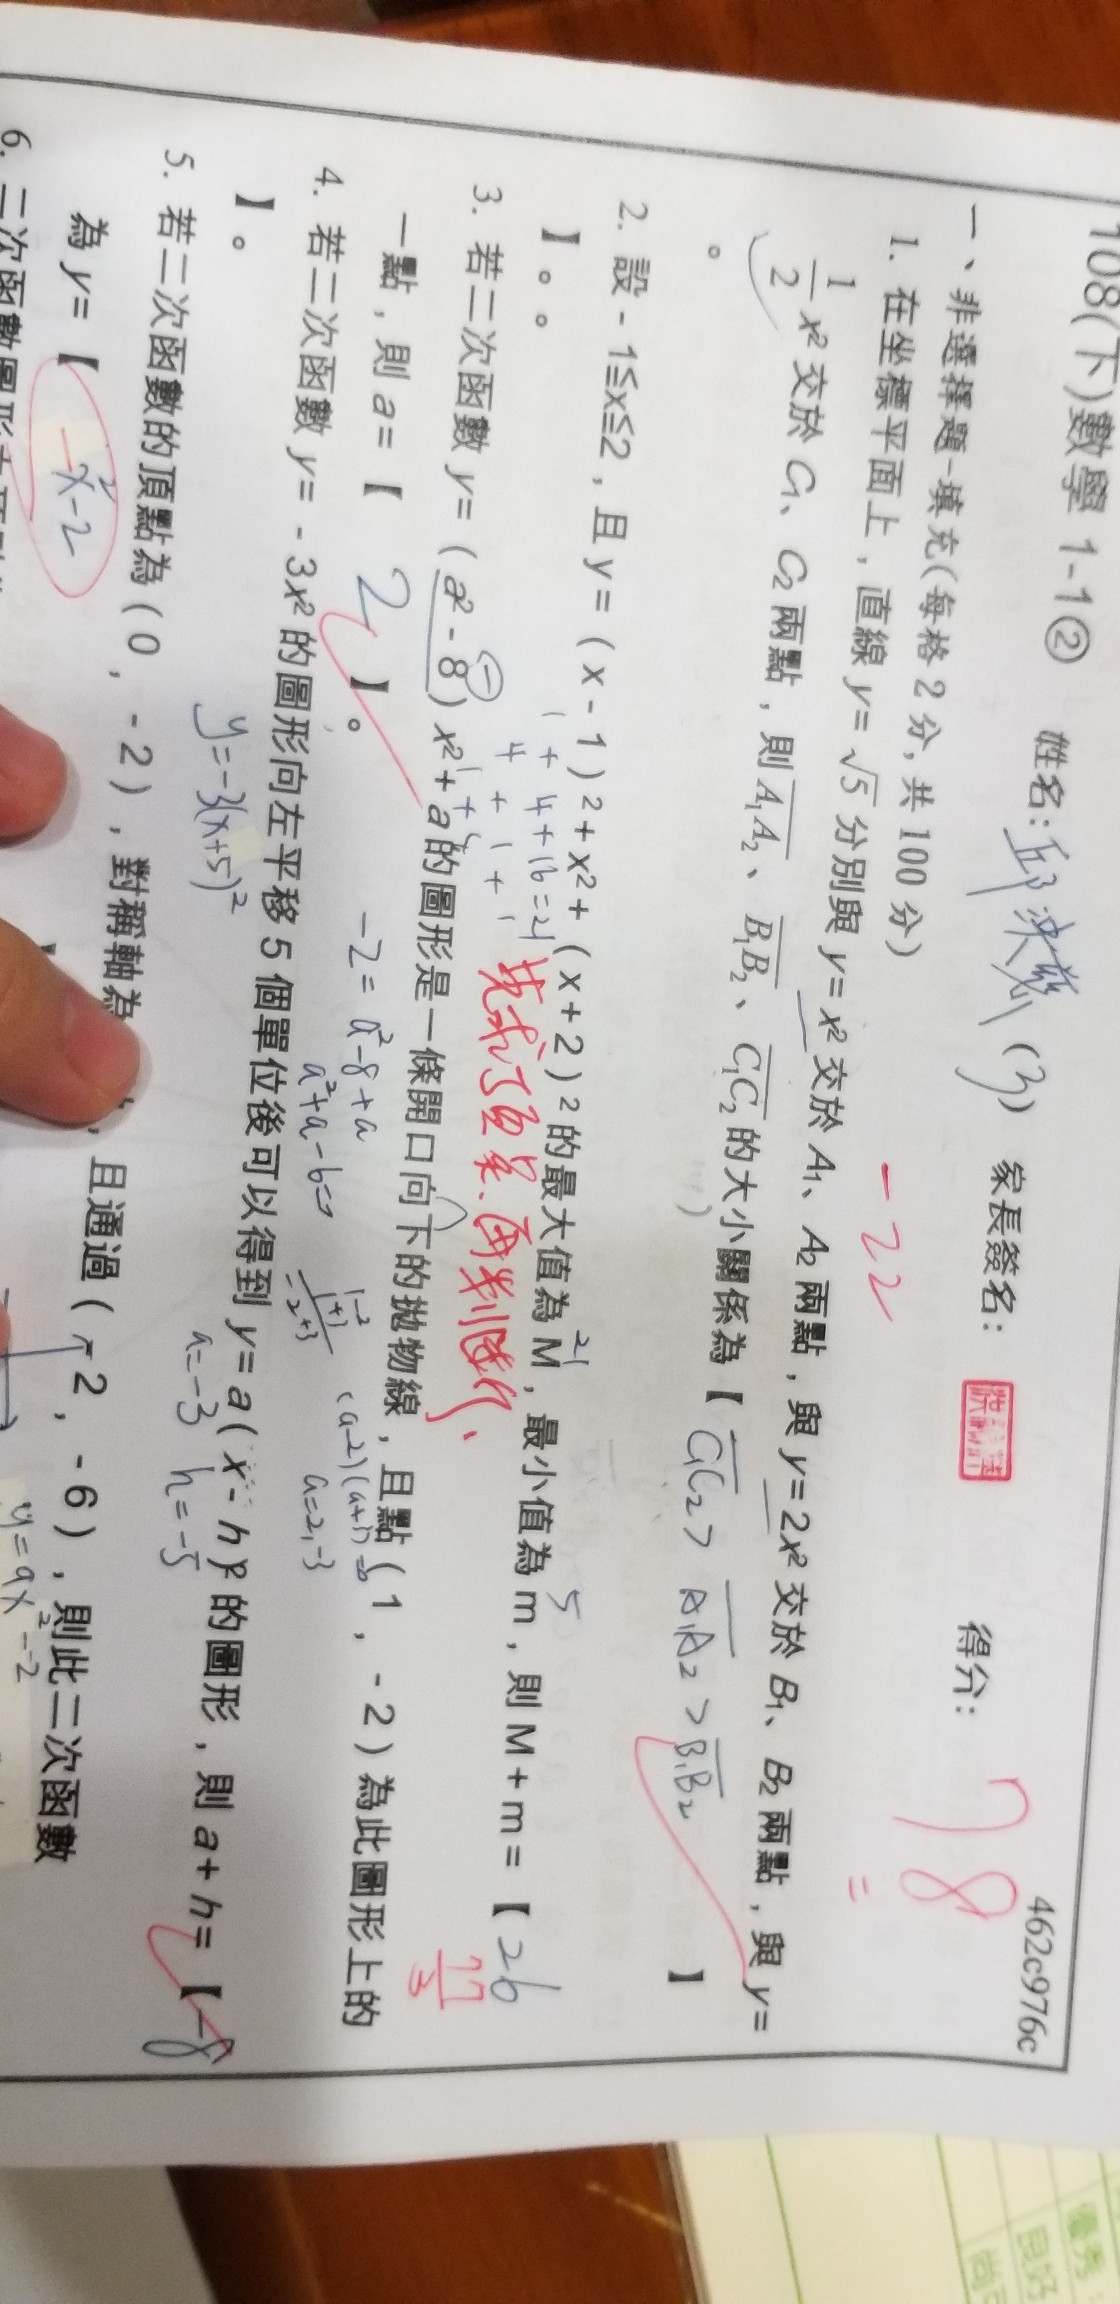 108(下)數學 1-1② 姓名: 邱 (3) 家長簽名: 得分: 78
462c976c
一、非選擇題-填充(每格 2 分, 共 100 分) -22
1. 在坐標平面上，直線 y=√5 分別與 y=x² 交於 A₁、A₂ 兩點，與 y=2x² 交於 B₁、B₂ 兩點，與 y=
1/2 x² 交於 C₁、C₂ 兩點，則 A₁A₂、B₁B₂、C₁C₂ 的大小關係為【 C₁C₂ > A₁A₂ > B₁B₂ 】
。
2. 設 -1≤x≤2，且 y=(x-1)²+x²+(x+2)² 的最大值為 M，最小值為 m，則 M+m=【 26
21
5
1+4+16=21
4+1+1
1+4
】。。
先求了頂點、再判斷
17/3
3. 若二次函數 y=(a²-8)x²+a 的圖形是一條開口向下的拋物線，且點(1，-2)為此圖形上的
(-)
一點，則 a=【 2 】。
-2=a²-8+a
a²+a-6=0
1-2
1+3
-2+3
(a-2)(a+3)=0
a=2,-3
4. 若二次函數 y=-3x² 的圖形向左平移 5 個單位後可以得到 y=a(x-h)² 的圖形，則 a+h=【 -8
】。
y=-3(x+5)²
a=-3 h=-5
5. 若二次函數的頂點為(0，-2)，對稱軸為，且通過(-2，-6)，則此二次函數
為 y=【 -x²-2
y=ax²-2
6. 二次函數圖形
優秀:
良好
尚可